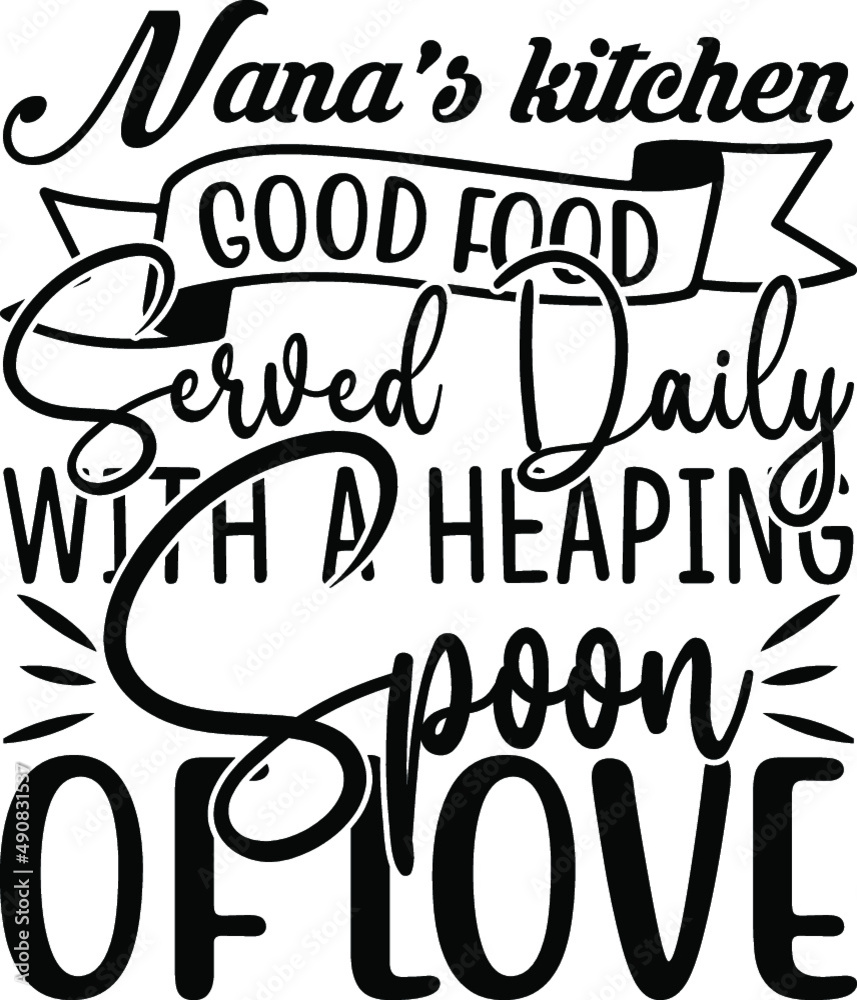 Nana's kitchen
GOOD FOOD
Served Daily
WITH A HEAPING
Spoon
OF LOVE
Adobe Stock | #490831537